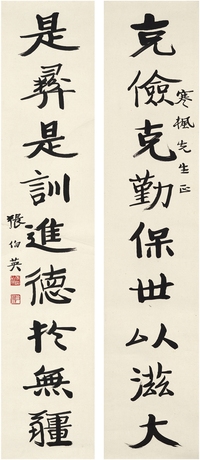 克儉克勤保世以滋大
寒楓先生正
是彞是訓進德於無疆
張伯英